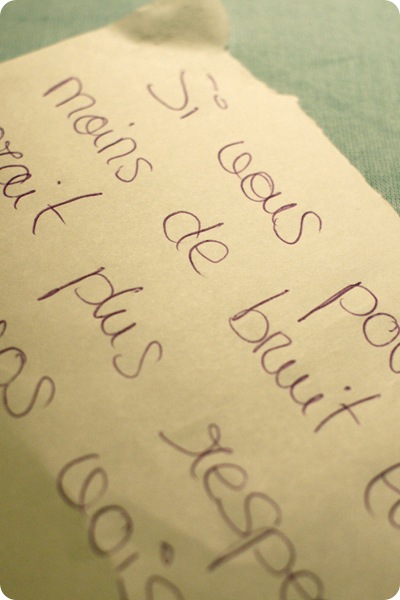 Si vous pou
moins de bruit
rait plus respe
vois